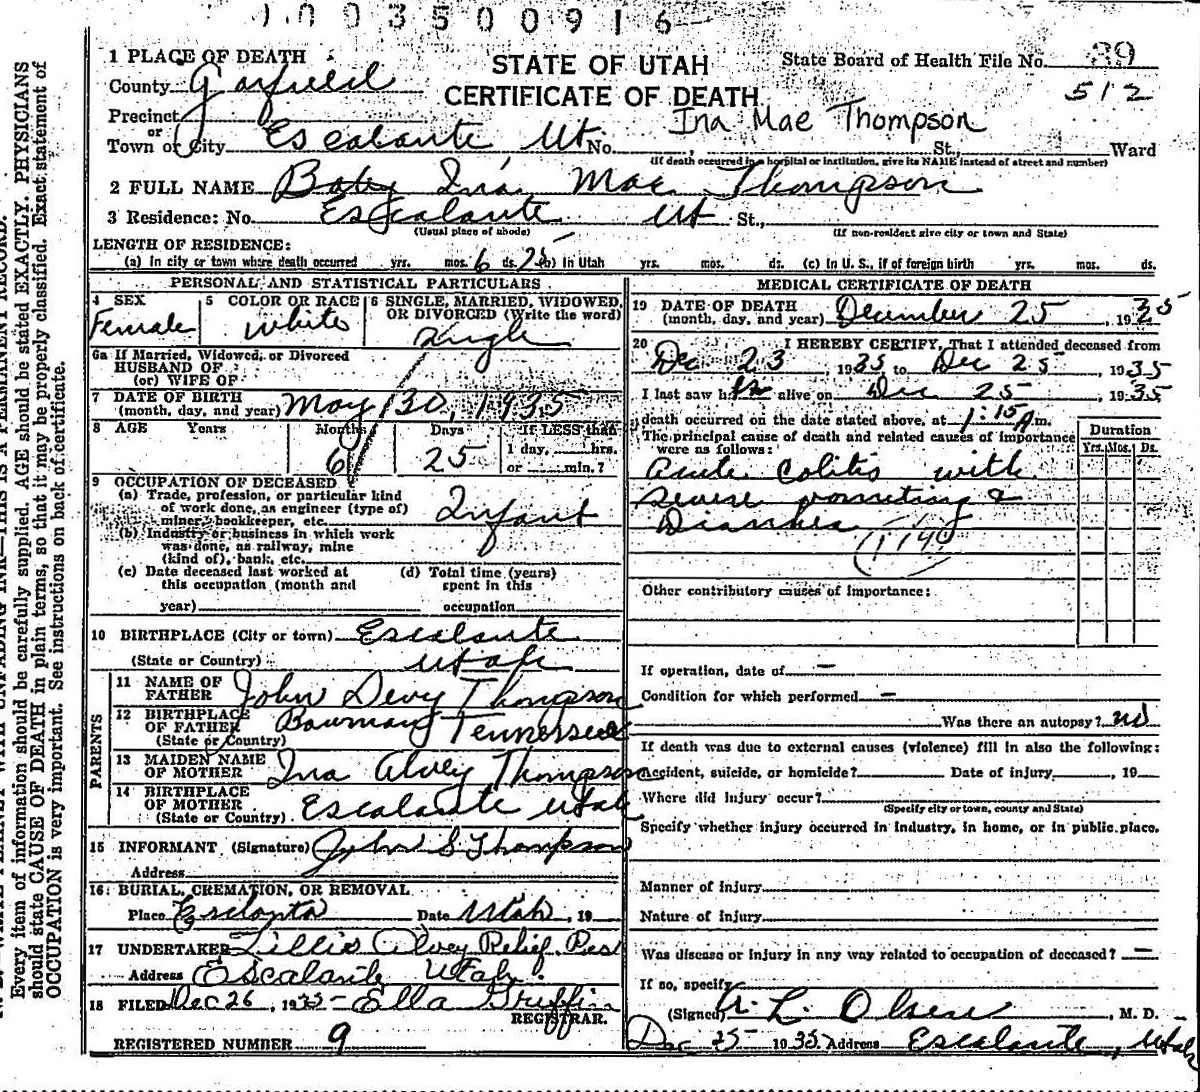 1003500916
1 PLACE OF DEATH
STATE OF UTAH
State Board of Health File No. 89
County Garfield
CERTIFICATE OF DEATH
512
Precinct
Ina Mae Thompson
or
Town or City Escalante Ut No. St., Ward
(If death occurred in a hospital or institution, give its NAME instead of street and number)
2 FULL NAME Baby Ina Mae Thompson
3 Residence: No. Escalante Ut St.,
(Usual place of abode) (If non-resident give city or town and State)
LENGTH OF RESIDENCE:
(a) In city or town where death occurred yrs. mos. 6 ds. 25 (b) In Utah yrs. mos. ds. (c) In U. S., if of foreign birth yrs. mos. ds.
PERSONAL AND STATISTICAL PARTICULARS
4 SEX
Female
5 COLOR OR RACE
white
6 SINGLE, MARRIED, WIDOWED, OR DIVORCED (Write the word)
Single
6a If Married, Widowed, or Divorced
HUSBAND OF
(or) WIFE OF
7 DATE OF BIRTH
(month, day, and year) May 30, 1935
8 AGE Years Months Days If LESS than
6 25 1 day, hrs.
or min.?
9 OCCUPATION OF DECEASED
(a) Trade, profession, or particular kind
of work done, as engineer (type of)
miner, bookkeeper, etc. Infant
(b) Industry or business in which work
was done, as railway, mine
(kind of), bank, etc.
(c) Date deceased last worked at
this occupation (month and
year)
(d) Total time (years)
spent in this
occupation
10 BIRTHPLACE (City or town) Escalante
(State or Country) Utah
PARENTS
11 NAME OF
FATHER John Devy Thompson
12 BIRTHPLACE
OF FATHER Bowman Tennessee
(State or Country)
13 MAIDEN NAME
OF MOTHER Ina Alvey Thompson
14 BIRTHPLACE
OF MOTHER Escalante Utah
(State or Country)
15 INFORMANT (Signature) John S Thompson
Address
16 BURIAL, CREMATION, OR REMOVAL
Place Esclanta Date Utah, 19
17 UNDERTAKER Lillis Alvey Relief Pres
Address Escalante Utah.
18 FILED Dec 26, 1935 Ella Griffin
REGISTRAR.
REGISTERED NUMBER 9
MEDICAL CERTIFICATE OF DEATH
19 DATE OF DEATH
(month, day, and year) December 25, 1935
20 I HEREBY CERTIFY, That I attended deceased from
Dec 23, 1935, to Dec 25, 1935
I last saw her alive on Dec 25, 1935
death occurred on the date stated above, at 1:15 A m.
The principal cause of death and related causes of importance
were as follows:
Duration
Yrs. Mos. Ds.
Acute Colitis with
severe vomiting &
Diarrhea
Other contributory causes of importance:
If operation, date of —
Condition for which performed —
Was there an autopsy? no
If death was due to external causes (violence) fill in also the following:
Accident, suicide, or homicide? Date of injury, 19
Where did injury occur?
(Specify city or town, county and State)
Specify whether injury occurred in industry, in home, or in public place.
Manner of injury
Nature of injury
Was disease or injury in any way related to occupation of deceased? —
If so, specify
(Signed) A. L. Olsen, M. D.
Dec 25 1935 Address Escalante, Utah
Every item of information should be carefully supplied. AGE should be stated EXACTLY. PHYSICIANS
should state CAUSE OF DEATH in plain terms, so that it may be properly classified. Exact statement of
OCCUPATION is very important. See instructions on back of certificate.